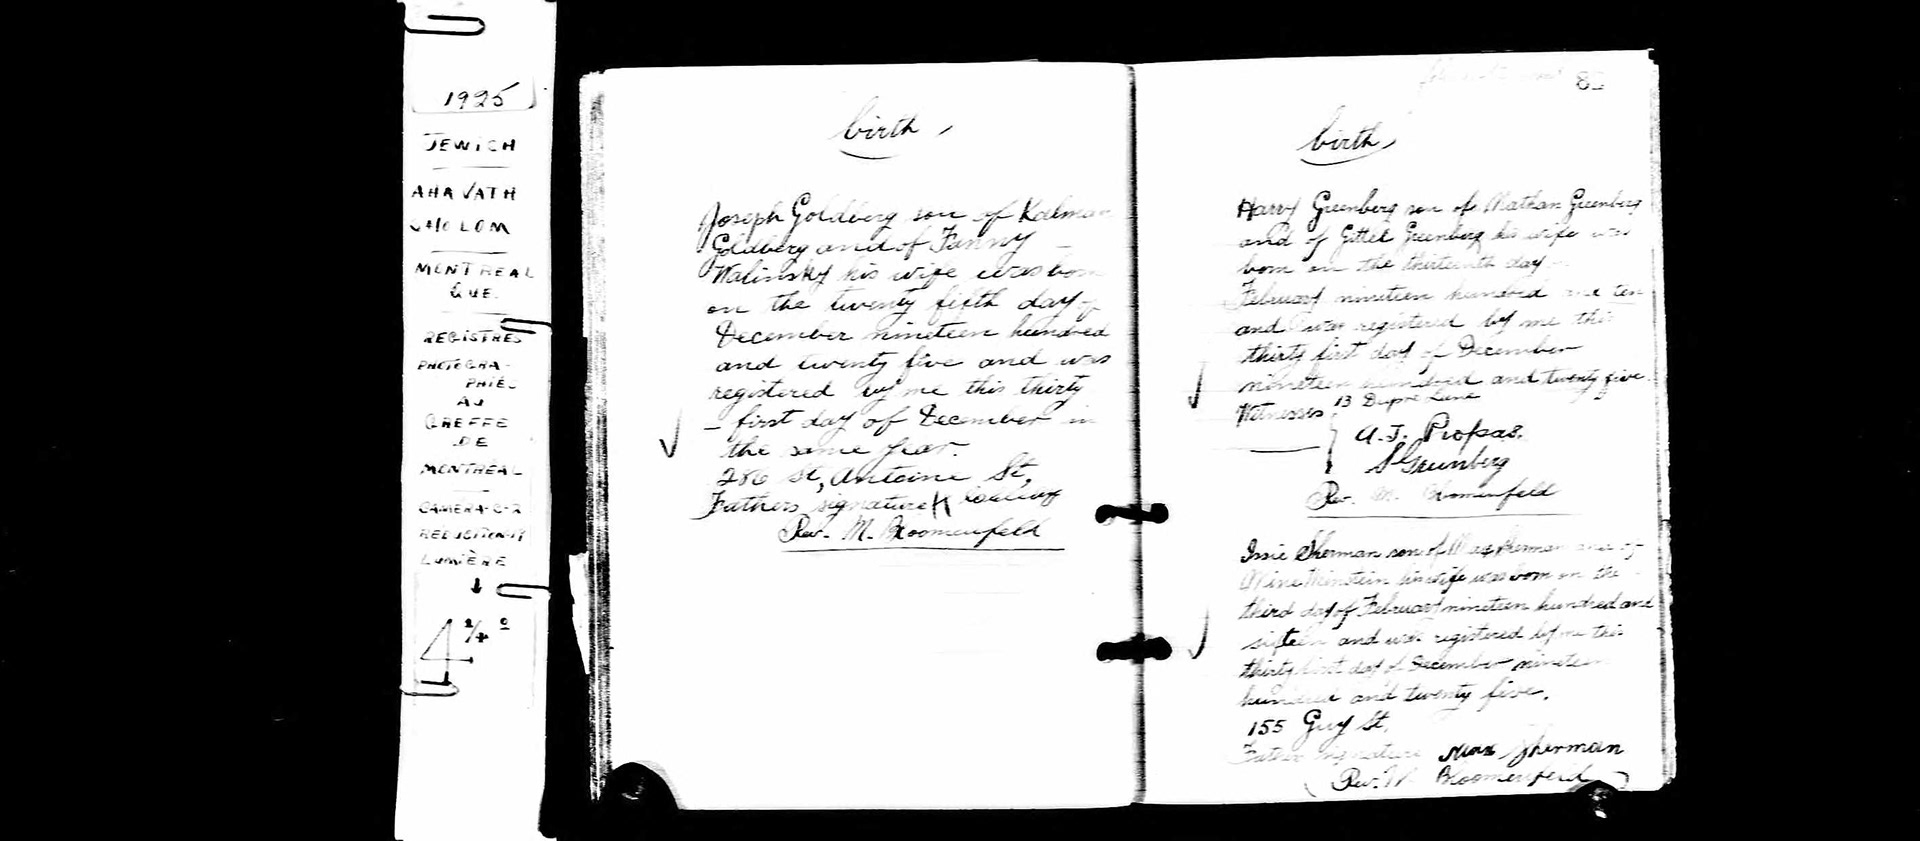 1925
JEWICH
AHAVATH
SHOLOM
MONTREAL
QUE.
REGISTRES
PHOTOGRA-
PHIÉS
AU
GREFFE
DE
MONTRÉAL
CAMERA-C-2
REDUCTION
LUMIÈRE
4 1/4
birth,
Joseph Goldberg son of Kalman
Goldberg and of Fanny
Walinsky his wife was born
on the twenty fifth day of
December nineteen hundred
and twenty five and was
registered by me this thirty
- first day of December in
the same year.
286 St, Antoine St,
Fathers signature K
Rev. M. Bloomenfeld
82
birth,
Harry Greenberg son of Nathan Greenberg
and of Gittel Greenberg his wife was
born on the thirteenth day
February nineteen hundred and ten
and was registered by me this
thirty first day of December
nineteen hundred and twenty five.
13 Dupre Lane
Witnesses
A. J. Propas.
S Greenberg
Rev. M. Bloomenfeld
Issie Sherman son of Max Sherman and of
his wife was born on the
third day of February nineteen hundred and
sixteen and was registered by me this
thirty first day of December nineteen
hundred and twenty five.
155 Guy St,
Father signature Max Sherman
Rev. M Bloomenfeld